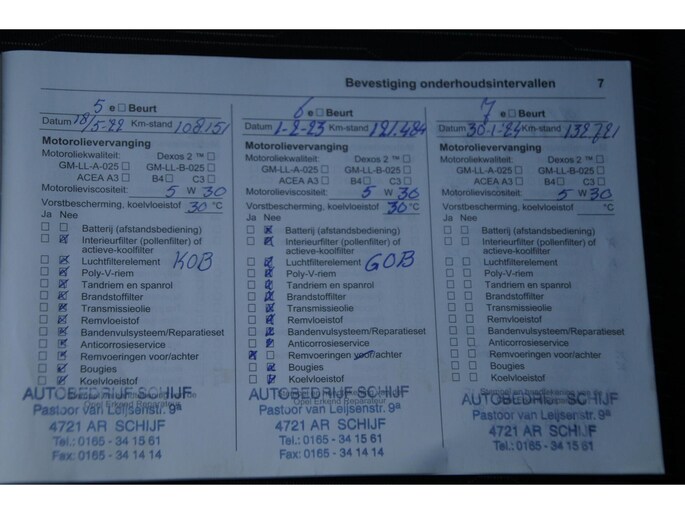 Bevestiging onderhoudsintervallen 7
5 e Beurt
Datum 18/5-22 Km-stand 108151
Motorolievervanging
Motoroliekwaliteit: Dexos 2 ™
GM-LL-A-025 GM-LL-B-025
ACEA A3 B4 C3
Motorolieviscositeit: 5 W 30
Vorstbescherming, koelvloeistof 30 °C
Ja Nee
Batterij (afstandsbediening)
Interieurfilter (pollenfilter) of
actieve-koolfilter
Luchtfilterelement KOB
Poly-V-riem
Tandriem en spanrol
Brandstoffilter
Transmissieolie
Remvloeistof
Bandenvulsysteem/Reparatieset
Anticorrosieservice
Remvoeringen voor/achter
Bougies
Koelvloeistof
AUTOBEDRIJF SCHIJF
Opel Erkend Reparateur
Pastoor van Leijsenstr. 9ª
4721 AR SCHIJF
Tel.: 0165 - 34 15 61
Fax: 0165 - 34 14 14
6 e Beurt
Datum 1-2-23 Km-stand 121.484
Motorolievervanging
Motoroliekwaliteit: Dexos 2 ™
GM-LL-A-025 GM-LL-B-025
ACEA A3 B4 C3
Motorolieviscositeit: 5 W 30
Vorstbescherming, koelvloeistof 30 °C
Ja Nee
Batterij (afstandsbediening)
Interieurfilter (pollenfilter) of
actieve-koolfilter
Luchtfilterelement GOB
Poly-V-riem
Tandriem en spanrol
Brandstoffilter
Transmissieolie
Remvloeistof
Bandenvulsysteem/Reparatieset
Anticorrosieservice
Remvoeringen voor/achter
Bougies
Koelvloeistof
AUTOBEDRIJF SCHIJF
Opel Erkend Reparateur
Pastoor van Leijsenstr. 9ª
4721 AR SCHIJF
Tel.: 0165 - 34 15 61
Fax: 0165 - 34 14 14
7 e Beurt
Datum 30-1-24 Km-stand 132721
Motorolievervanging
Motoroliekwaliteit: Dexos 2 ™
GM-LL-A-025 GM-LL-B-025
ACEA A3 B4 C3
Motorolieviscositeit: 5 W 30
Vorstbescherming, koelvloeistof °C
Ja Nee
Batterij (afstandsbediening)
Interieurfilter (pollenfilter) of
actieve-koolfilter
Luchtfilterelement
Poly-V-riem
Tandriem en spanrol
Brandstoffilter
Transmissieolie
Remvloeistof
Bandenvulsysteem/Reparatieset
Anticorrosieservice
Remvoeringen voor/achter
Bougies
Koelvloeistof
AUTOBEDRIJF SCHIJF
Pastoor van Leijsenstr. 9ª
4721 AR SCHIJF
Tel.: 0165 - 34 15 61